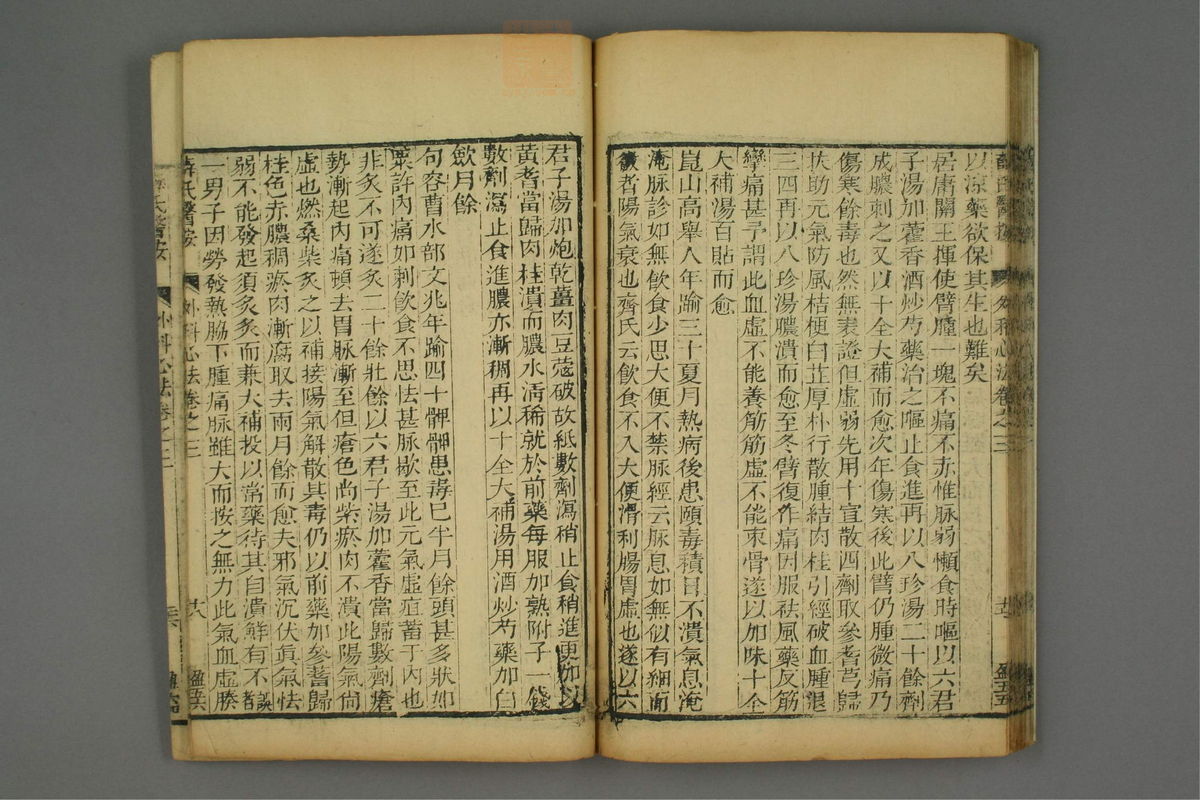 薛氏醫按 外科心法卷之三 盈五五
以涼藥欲保其生也難矣
居庸關王揮使臂腫一塊不痛不赤惟脉弱懶食時嘔以六君
子湯加藿香酒炒芍藥治之嘔止食進再以八珍湯二十餘劑
成膿刺之又以十全大補而愈次年傷寒後此臂仍腫微痛乃
傷寒餘毒也然無表證但虛弱先用十宣散四劑取參耆芎歸
扶助元氣防風桔梗白芷厚朴行散腫結肉桂引經破血腫退
三四再以八珍湯膿潰而愈至冬臂復作痛因服祛風藥反筋
攣痛甚予謂此血虛不能養筋筋虛不能束骨遂以加味十全
大補湯百貼而愈
崑山高舉人年踰三十夏月熱病後患頤毒積日不潰氣息淹
淹脉診如無飲食少思大便不禁脉經云脉息如無似有細而
微者陽氣衰也齊氏云飲食不入大便滑利腸胃虛也遂以六
君子湯加炮乾薑肉豆蔻破故紙數劑瀉稍止食稍進更加以
黃耆當歸肉桂潰而膿水清稀就於前藥每服加熟附子一錢
數劑瀉止食進膿亦漸稠再以十全大補湯用酒炒芍藥加白
歛月餘
句容曹水部文兆年踰四十髀胛患毒巳半月餘頭甚多狀如
粟許內痛如刺飲食不思怯甚脉歇至此元氣虛疽蓄于內也
非炙不可遂炙二十餘壯餘以六君子湯加藿香當歸數劑瘡
勢漸起內痛頓去胃脉漸至但瘡色尚紫瘀肉不潰此陽氣尚
虛也燃桑柴炙之以補接陽氣解散其毒仍以前藥加參蓍歸
桂色赤膿稠瘀肉漸腐取去兩月餘而愈夫邪氣沉伏真氣怯
弱不能發起須炙炙而兼大補投以常藥待其自潰鮮有不誤者
一男子因勞發熱脇下腫痛脉雖大而按之無力此氣血虛腠
薛氏醫按 外科心法卷之三 廿八 盈五六